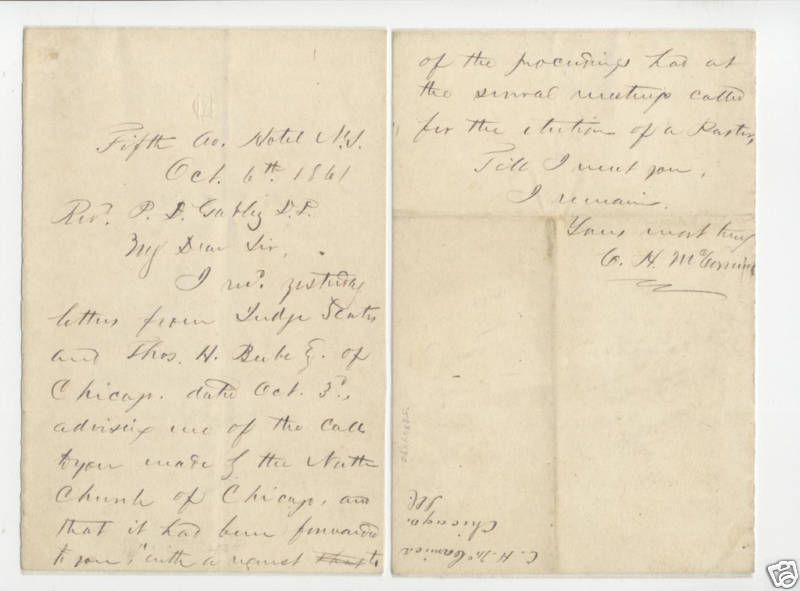 Fifth Av. Hotel N.Y.
Oct. 6th. 1861
Revd. P. D. D.D.
My Dear Sir,
I recd. yesterday
letters from Judge
and Thos. H. Beebe of
Chicago. dated Oct. 3d.,
advising me of the call
to you made by the North
Church of Chicago, and
that it had been forwarded
to you, "with a request that to
of the proceedings had at
the several meetings called
for the election of a Pastor,
Till I meet you,
I remain,
Yours most truly
C. H. McCormick
C. H. McCormick
Chicago.
Ill.
ebay